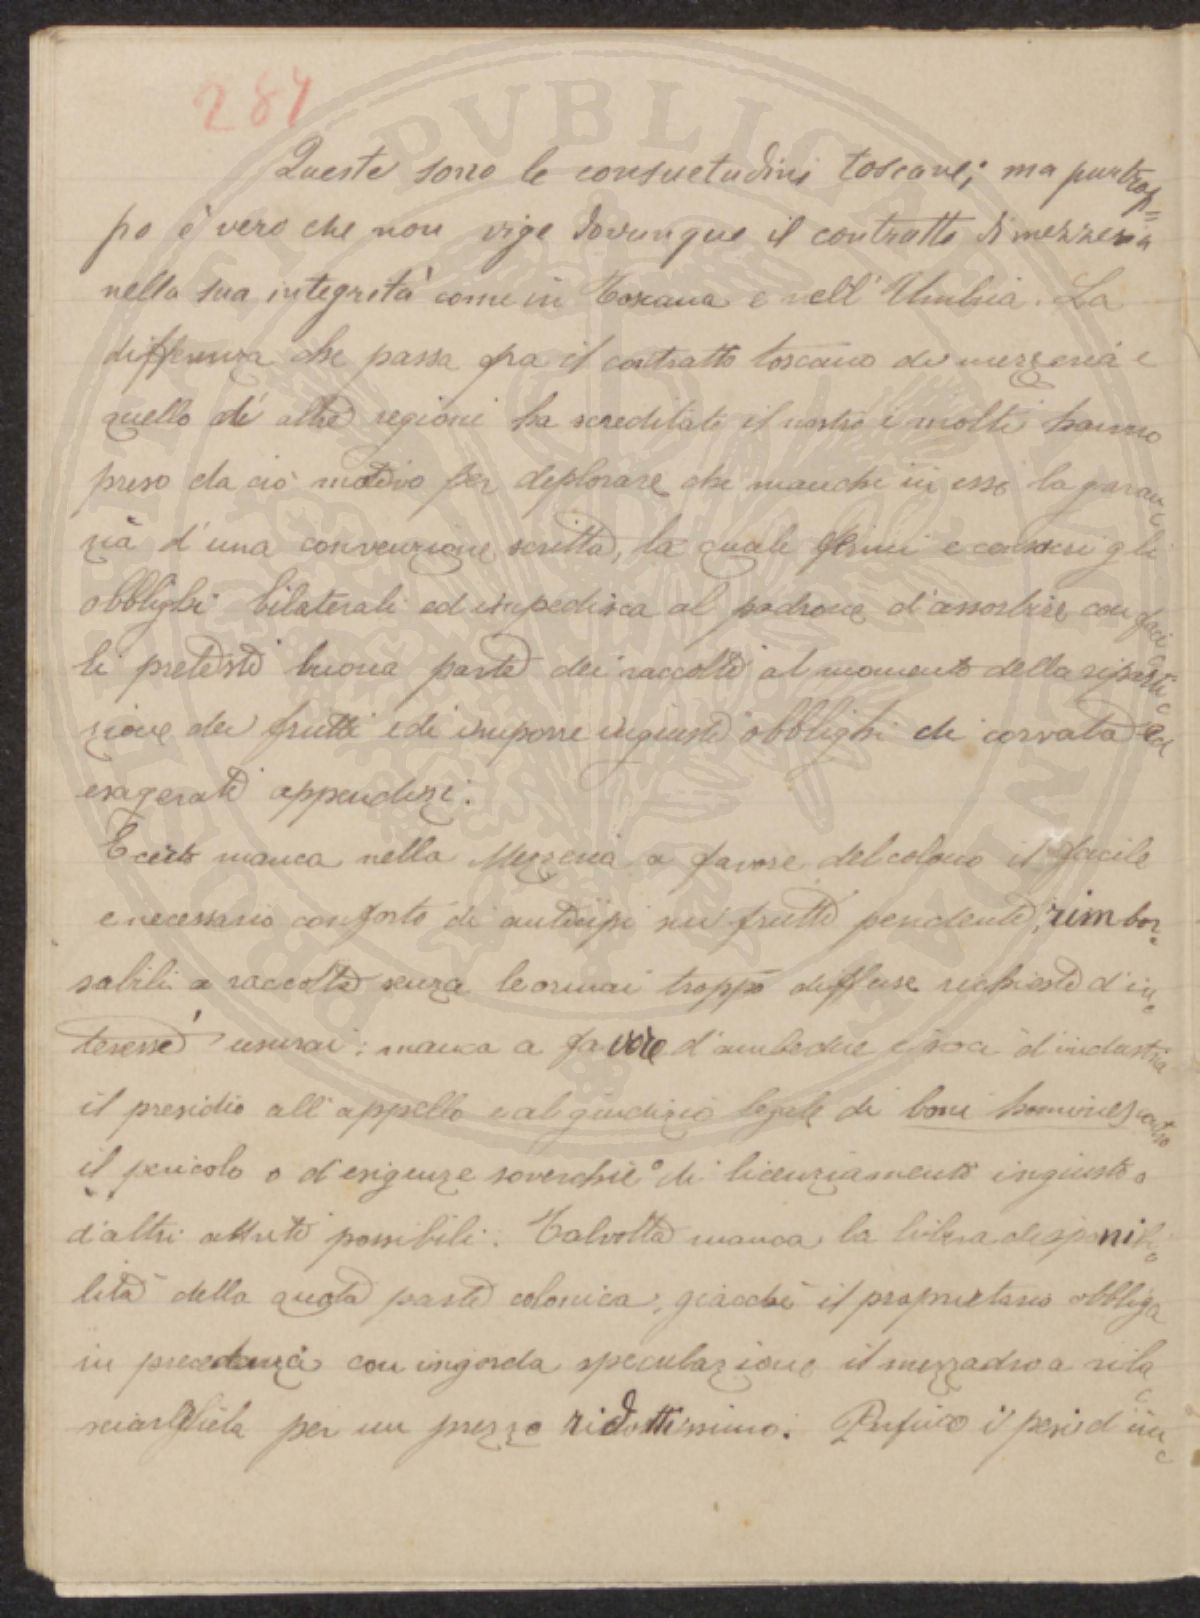 284
Queste sono le consuetudini toscane; ma purtrop=
po è vero che non vige dovunque il contratto di mezzeria
nella sua integrità come in Toscana e nell'Umbria. La
differenza che passa fra il contratto toscano di mezzeria e
quello di altre regioni ha screditato il nostro e molti hanno
preso da ciò motivo per deplorare che manchi in esso la garan-
zia d'una convenzione scritta, la quale firmi e consacri gli
obblighi bilaterali ed impedisca al padrone d'assorbire con faci-
li pretesti buona parte dei raccolti al momento della riparti-
zione dei frutti e di imporre ingiusti obblighi di corvata ed
esagerati appendizi.
E certo manca nella Mezzeria a favore del colono il facile
e necessario conforto di anticipi sui frutti pendenti, rimbor-
sabili a raccolta senza le ormai troppo diffuse richieste d'in-
teressi usurai: manca a favore d'ambedue i soci d'industria
il presidio all'appello e al giudizio legale di boni homines contro
il pericolo o d'esigenze soverchie o di licenziamento ingiusto o
d'altri attriti possibili. Talvolta manca la libera disponibi-
lità della quota parte colonica, giacchè il proprietario obbliga
in precedenza con ingorda speculazione il mezzadro a rila-
sciargliela per un prezzo ridottissimo. Perfino i pesi d'im-